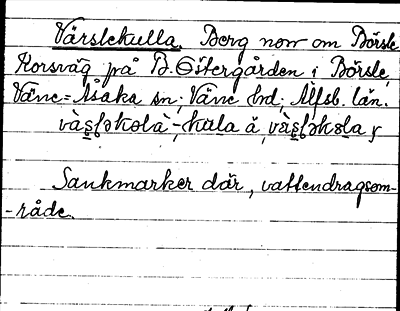 Värslekulla. Berg norr om Börsle
Korsväg på B. Östergården i Börsle,
Väne-Åsaka sn; Väne hd; Älfsb. län.

Sankmarker där, vattendragsom-
-råde.